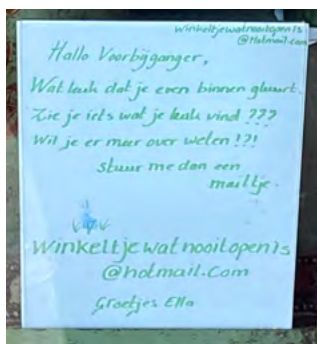 Winkeltjewatnooitopenis
@Hotmail.com
Hallo Voorbijganger,
Wat leuk dat je even binnen gluurt.
Zie je iets wat je leuk vind ???
Wil je er meer over weten !?!
Stuur me dan een
mailtje.
Winkeltjewatnooitopenis
@hotmail.com
Groetjes Ella